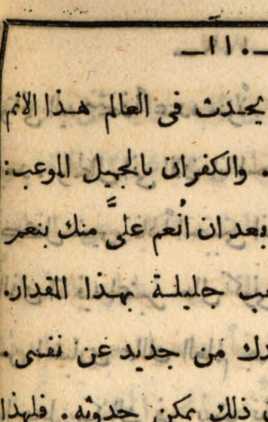 ـ١١٠ـ
يحدث فى العالم هذا الاثم
. والكفران بالجميل الموعب:
بعد ان أنعم علىَّ منك بنعم
جليلة بهذا المقدار.
من جديد عن نفسى.
ذلك يمكن حدوثه. فلهذا